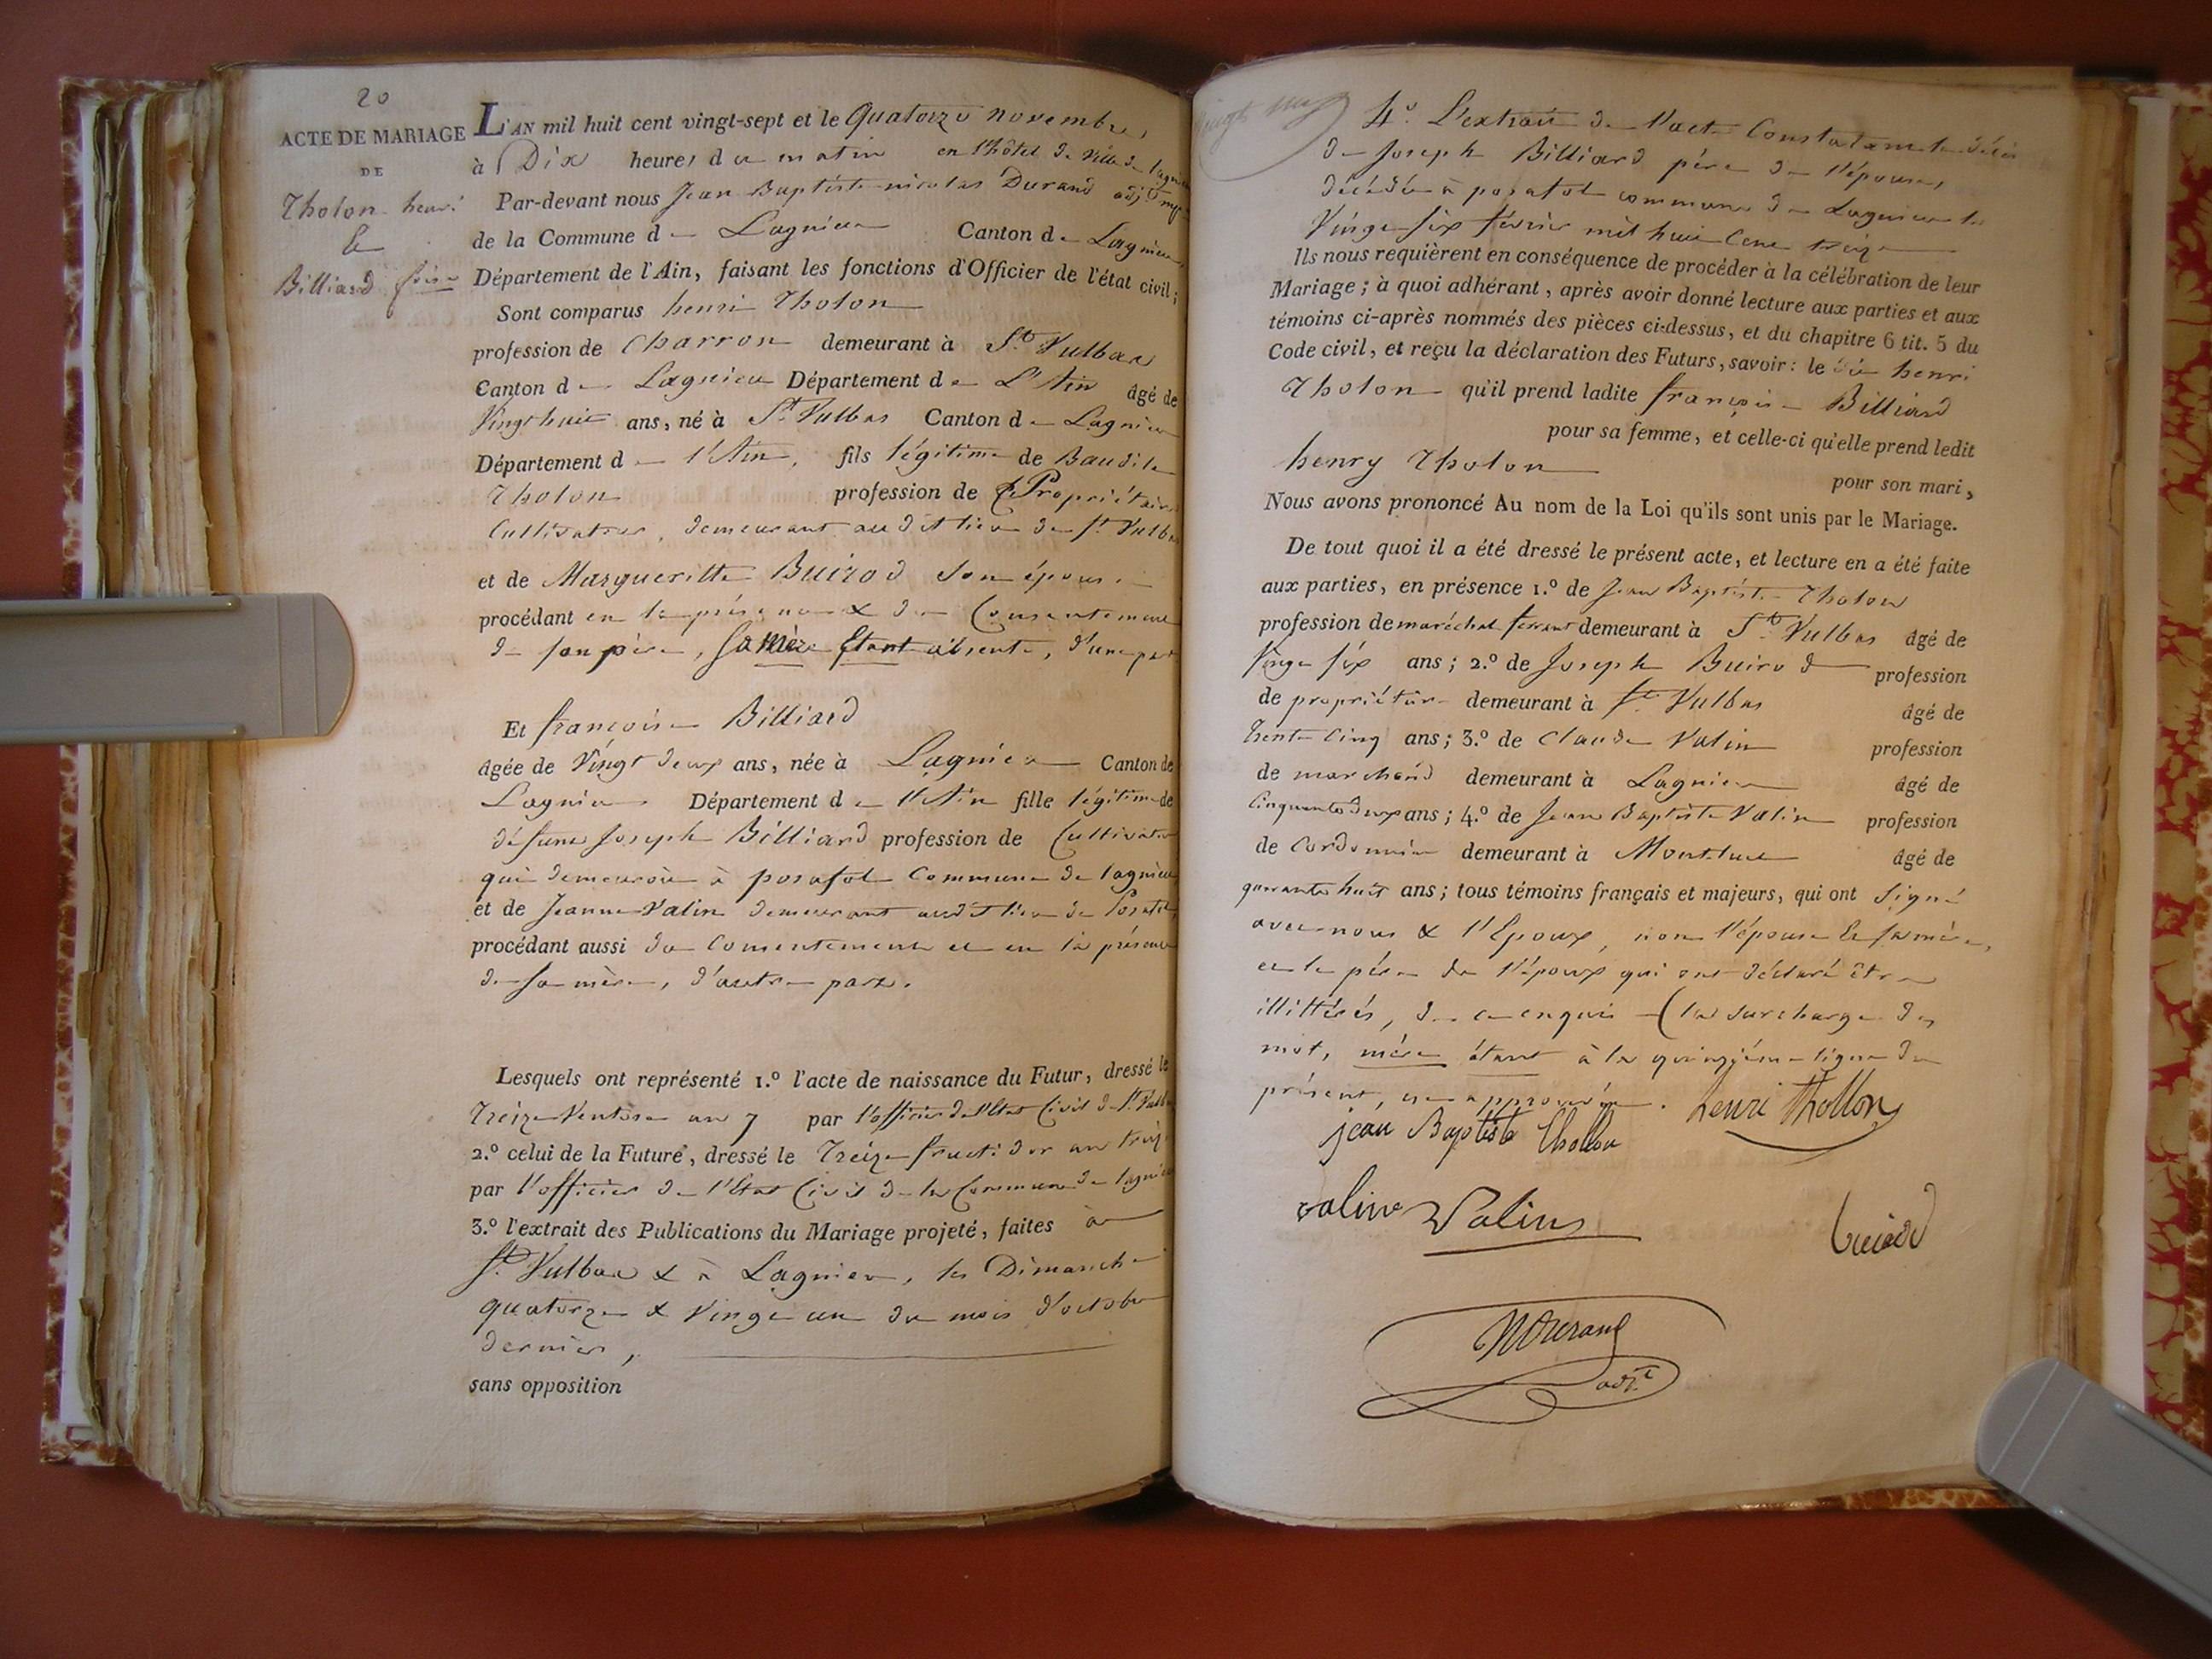 20
ACTE DE MARIAGE
DE
Tholon henri
Et
Billiard frse
L'AN mil huit cent vingt-sept et le Quatorze novembre,
à Dix heures du matin en l'hôtel de ville de lagnieu
Par-devant nous Jean Baptiste nicolas Durand adjt
de la Commune de Lagnieu Canton de Lagnieu,
Département de l'Ain, faisant les fonctions d'Officier de l'état civil;
Sont comparus henri Tholon
profession de Charron demeurant à St. Vulbas
Canton de Lagnieu Département de L'Ain âgé de
Vingt huit ans, né à St. Vulbas Canton de Lagnieu
Département de l'Ain, fils légitime de Baudile
Tholon profession de Propriétaire
Cultivateur, demeurant audit lieu de St. Vulbas
et de Margueritte Buirod Son épouse
procédant en la présence & du Consentement
de son père, Sa Mère Etant absente, d'une part
Et françoise Billiard
âgée de Vingt deux ans, née à Lagnieu Canton de
Lagnieu Département de l'Ain fille légitime de
défunt Joseph Billiard profession de Cultivateur
qui demeuroit à posafol Commune de lagnieu
et de Jeanne Valin demeurant audit lieu de Posafol
procédant aussi du Consentement et en la présence
de sa mère, d'autre part.
Lesquels ont représenté 1.º l'acte de naissance du Futur, dressé le
Treize Ventose an 7 par l'officier de l'Etat Civil de St. Vulbas
2.º celui de la Future, dressé le Treize fructidor an treize
par l'officier de l'Etat Civil de la Commune de lagnieu
3.º l'extrait des Publications du Mariage projeté, faites à
St. Vulbas & à Lagnieu, les Dimanche
quatorze & vingt un du mois d'octobre
dernier,
sans opposition
4º. L'extrait de l'acte Constatant le décès
de Joseph Billiard père de l'épouse,
décédé à posafol commune de Lagnieu le
Vingt six février mil huit Cent treize
Ils nous requièrent en conséquence de procéder à la célébration de leur
Mariage; à quoi adhérant, après avoir donné lecture aux parties et aux
témoins ci-après nommés des pièces ci-dessus, et du chapitre 6 tit. 5 du
Code civil, et reçu la déclaration des Futurs, savoir: le dit henri
Tholon qu'il prend ladite françoise Billiard
pour sa femme, et celle-ci qu'elle prend ledit
henry Tholon
pour son mari,
Nous avons prononcé Au nom de la Loi qu'ils sont unis par le Mariage.
De tout quoi il a été dressé le présent acte, et lecture en a été faite
aux parties, en présence 1.º de Jean Baptiste Tholon
profession de maréchal ferrant demeurant à St. Vulbas âgé de
Vingt six ans; 2.º de Joseph Buirod profession
de propriétaire demeurant à St. Vulbas âgé de
trente cinq ans; 3.º de Claude Valin profession
de marchand demeurant à Lagnieu âgé de
Cinquante deux ans; 4.º de Jean Baptiste Valin profession
de Cordonnier demeurant à Montluel âgé de
quarante huit ans; tous témoins français et majeurs, qui ont Signé
avec nous & l'Epoux, non l'épouse Et sa mère,
et le père de l'époux qui ont déclaré être
illittérés, de ce enquis (la surcharge des
mot, mère étant à la quinzième ligne du
présent, est approuvée. henri Thollon
jean Baptiste Thollon
valin Valin
buirod
NDurand
adjt